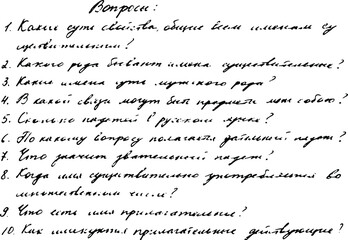 Вопросы:
1. Какие суть свойства, общие всем именам су
ществительным?
2. Какого рода бывают имена существительные?
3. Какие имена суть мужского рода?
4. В какой связи могут быть предметы меж собою?
5. Сколько падежей в русском языке?
6. По какому вопросу полагается дательный падеж?
7. Что значит звательный падеж?
8. Когда имя существительно употребляется во
множественном числе?
9. Что есть имя прилагательное?
10. Как именуются прилагательные действующие?